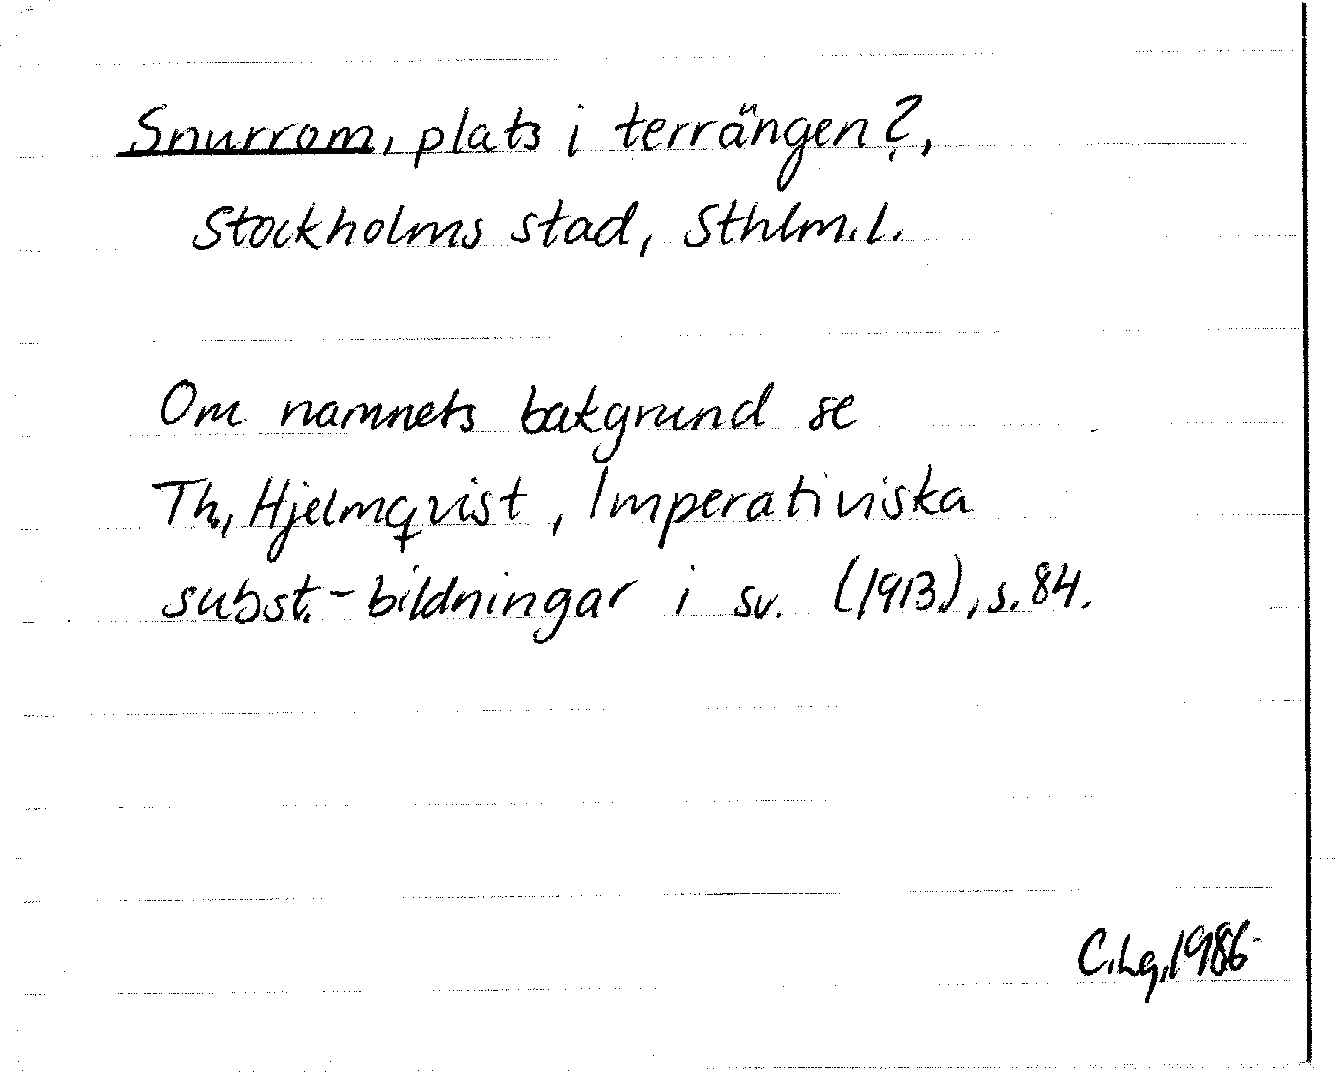 Snurrom, plats i terrängen?,
Stockholms stad, Sthlm.l.
Om namnets bakgrund se
Th. Hjelmqvist, Imperativiska
subst.-bildningar i sv. (1913), s. 84.
C.Lg. 1986